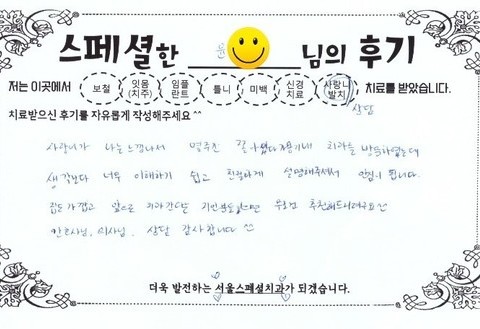 스페셜한 윤 님의 후기
저는 이곳에서 보철 잇몸(치주) 임플란트 틀니 미백 신경치료 사랑니발치 치료를 받았습니다.
상담
치료받으신 후기를 자유롭게 작성해주세요^^
사랑니가 나는 느낌나서 치과를 방문하였는데
생각보다 너무 이해하기 쉽고 친절하게 설명해주셔서 안심이 됩니다.
집도 가깝고 앞으로 치과간달 추천해드리려구요
간호사님, 의사님, 상담 감사합니다
더욱 발전하는 서울스페셜치과가 되겠습니다.